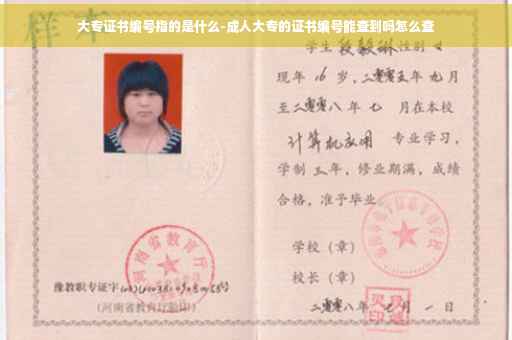 大专证书编号指的是什么-成人大专的证书编号能查到吗怎么查
样本
学生 段毅琳 性别 女
现年 16 岁，二零零五年 九 月
至二零零八年 七 月在本校
计算机应用 专业学习，
学制 三 年，修业期满，成绩
合格，准予毕业
学校（章）
校长（章）
二零零八年 七 月 一 日
河南省教育厅
豫教职专证字
（河南省教育厅验印）